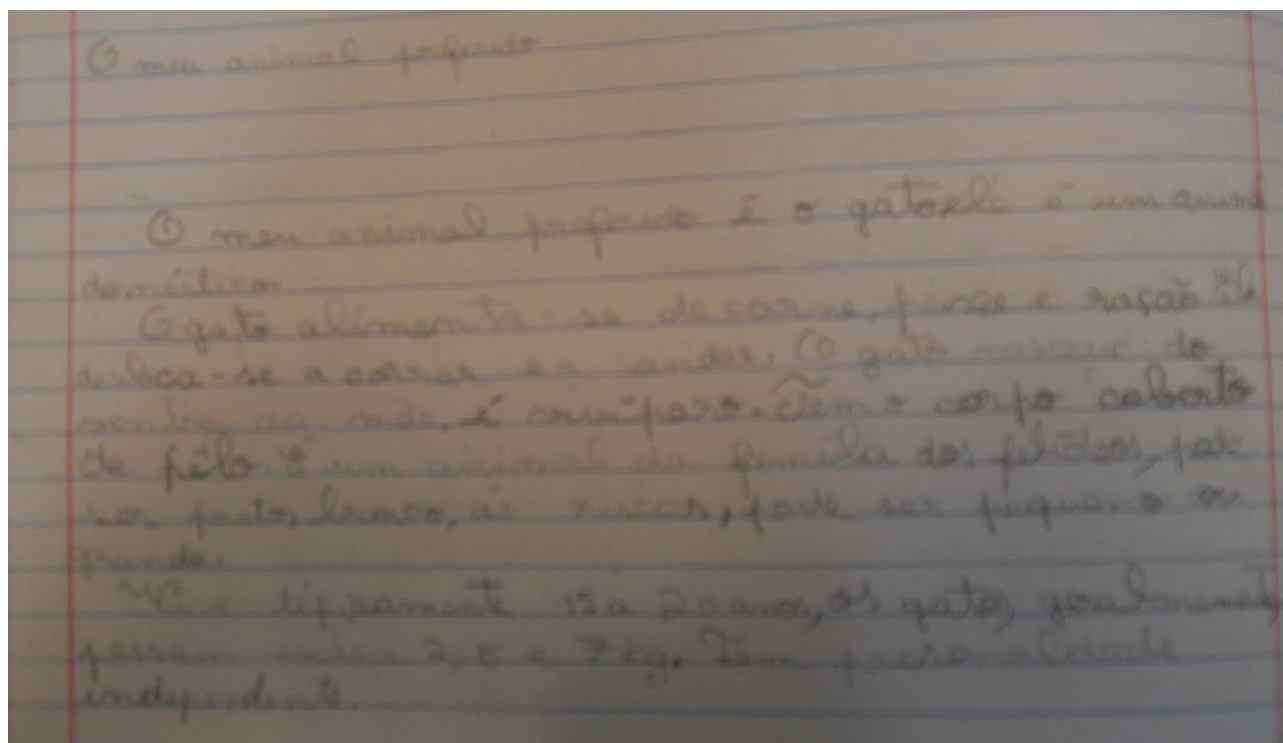 O meu animal preferido
O meu animal preferido é o gato,ele é um anima
doméstico.
O gato alimenta-se de carne, peixe e ração
se a correr e a andar. O gato do
ventre da mãe, é vivíparo. Tem o corpo coberto
de pêlo é um animal da família dos felídeos, pode
ser preto, branco, às riscas, pode ser pequeno ou
grande.
Vive tipicamente 15 a 20 anos, os gatos geralmente
pesam entre 2,5 e 7 kg. Tem
independente.